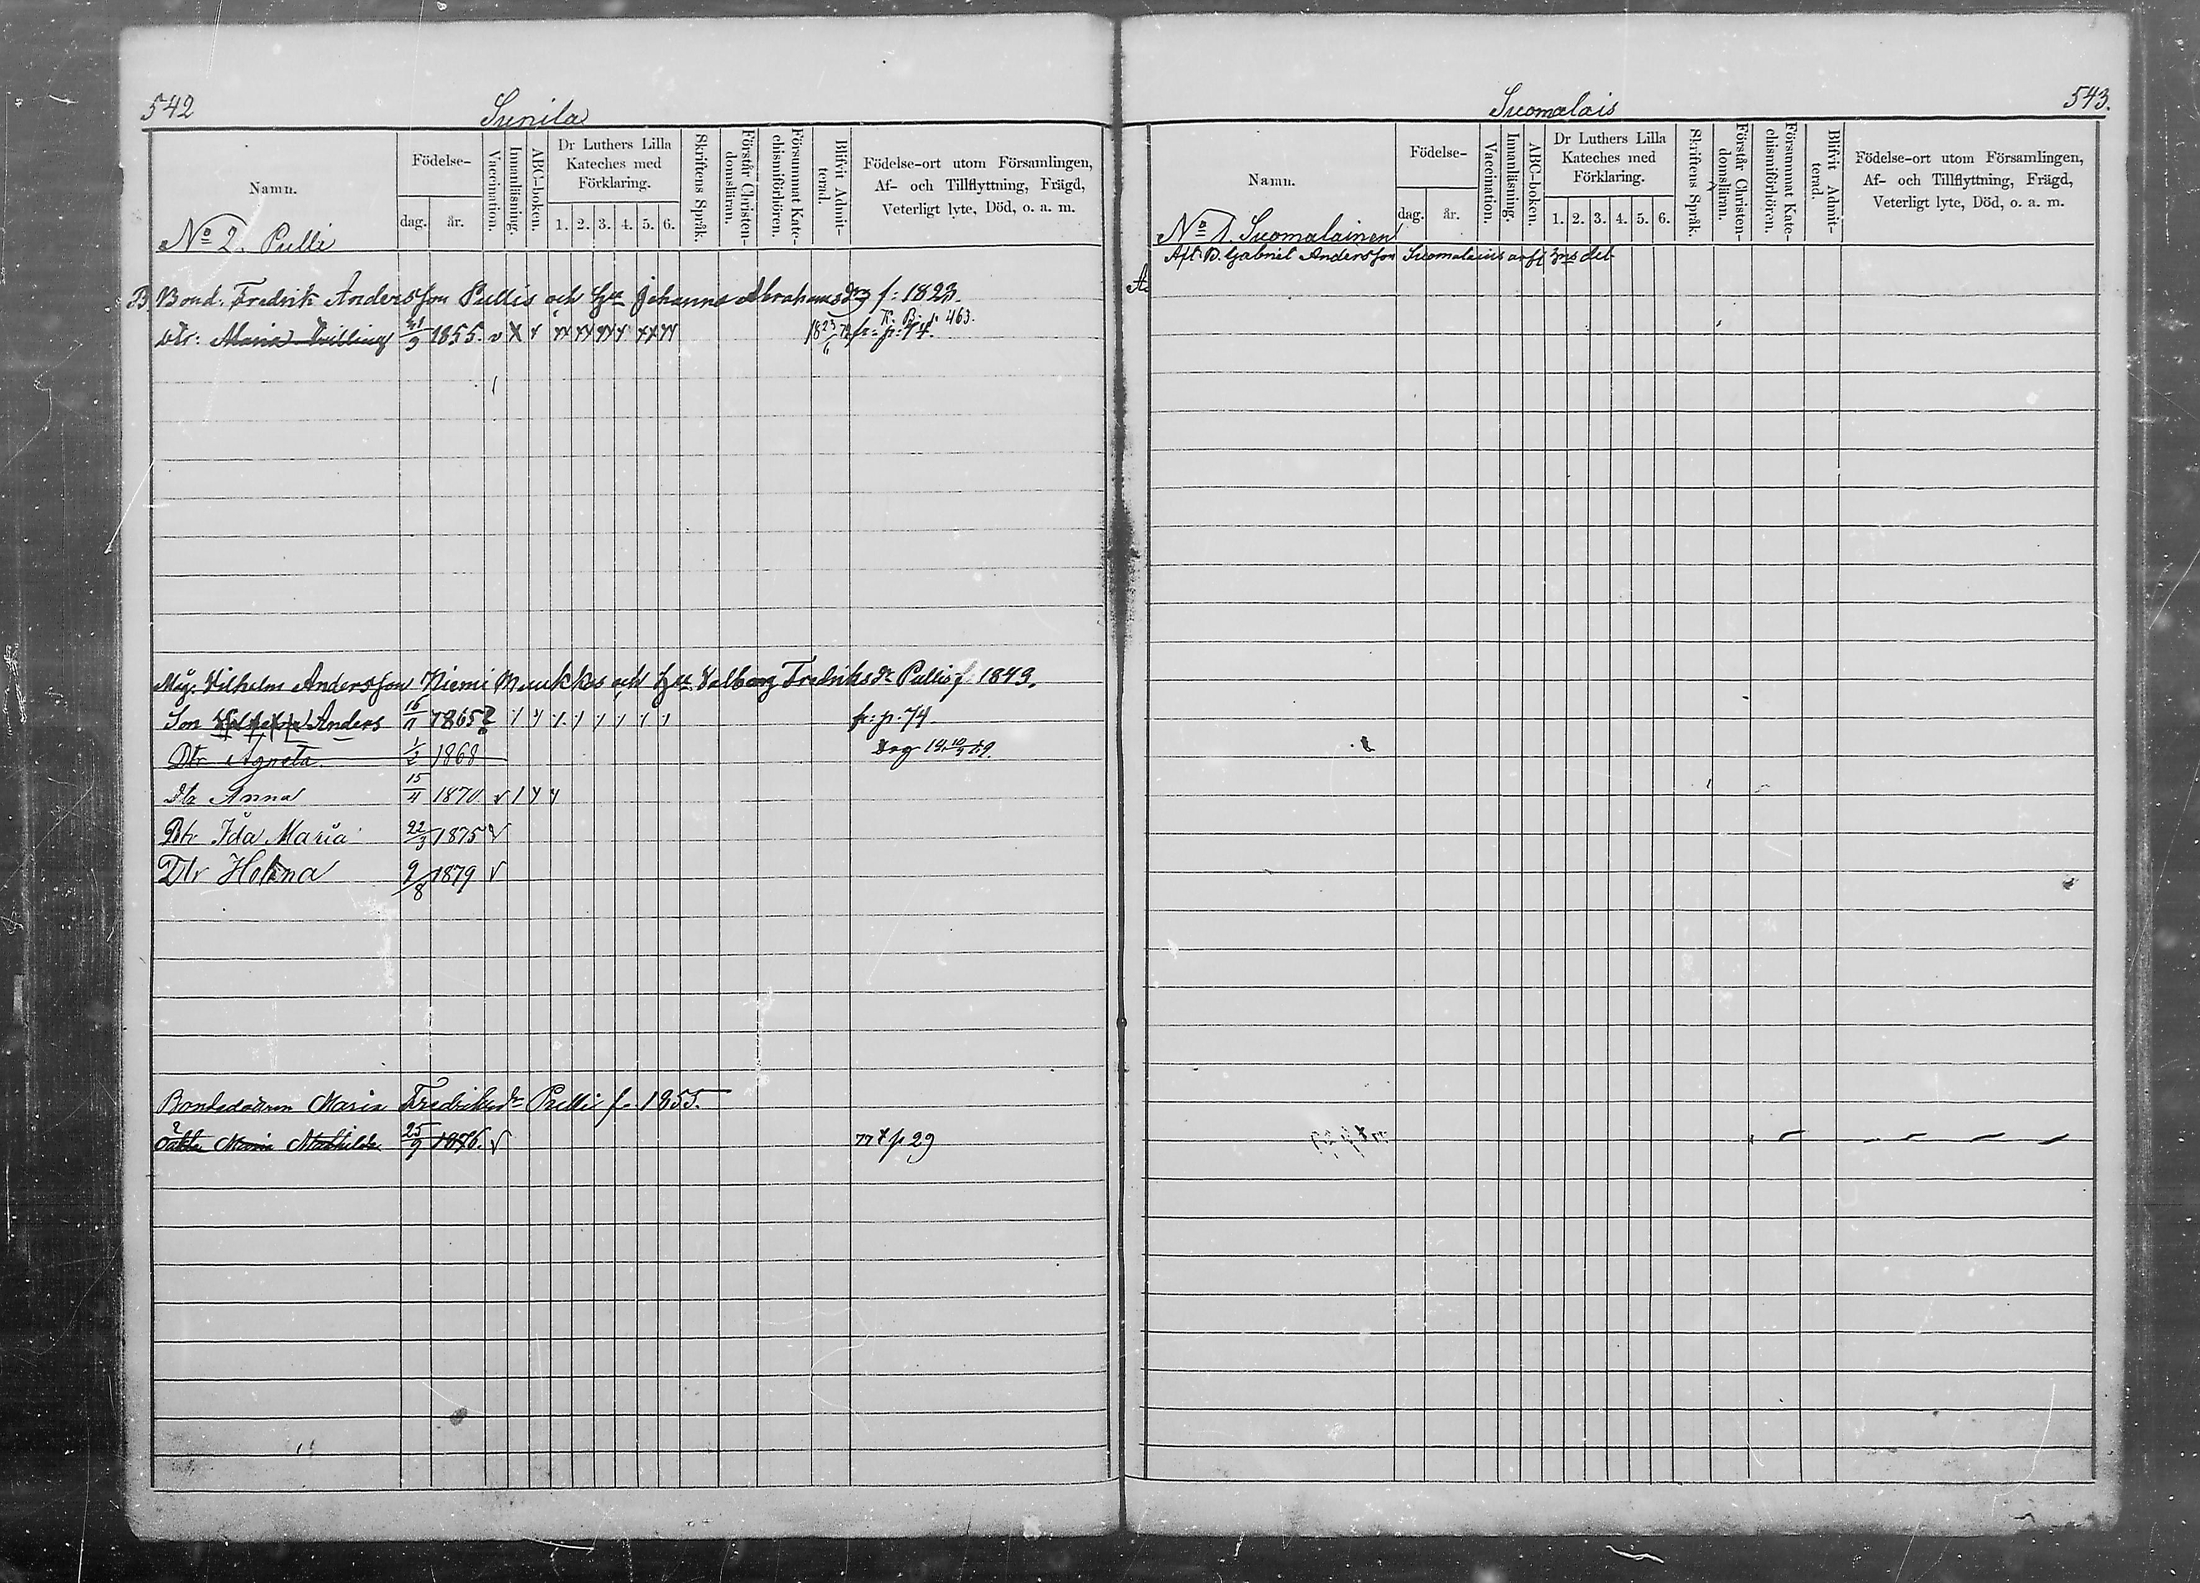 542
Sunila
Namn.
Födelse-
dag. år.
Vaccination.
Innanläsning.
ABC-boken.
Dr Luthers Lilla
Kateches med
Förklaring.
1. 2. 3. 4. 5. 6.
Skriftens Språk.
Förstår Christen-
domsläran.
Försummat Kate-
chismiförhören.
Blifvit Admit-
terad.
Födelse-ort utom Församlingen,
Af- och Tillflyttning, Frägd,
Veterligt lyte, Död, o. a. m.
No 2. Pulli
B Bond. Fredrik Andersson Pullis och Hu Johanna Abrahamsdr f: 1823.
K. B. p. 463.
Dtr: Maria 21/9 1855. fr: p: 74.
Måg. Vilhelm Andersson Niemi Muukkas och Hu Valborg Fredriksdr Pullis f. 1849.
Son Anders 16/11 1865? fr: p: 74
Dtr Agneta 1/2 1868
Dtr Anna 15/11 1870
Dtr Ida Maria 22/3 1875
Dtr Helena 9/8 1879
Bondedottren Maria Fredriksdr Pulli f. 1855.
Maria Mathilda 25/9 1876. 77 p 29
Suomalais
543.
Namn.
Födelse-
dag. år.
Vaccination.
Innanläsning.
ABC-boken.
Dr Luthers Lilla
Kateches med
Förklaring.
1. 2. 3. 4. 5. 6.
Skriftens Språk.
Förstår Christen-
domsläran.
Försummat Kate-
chismiförhören.
Blifvit Admit-
terad.
Födelse-ort utom Församlingen,
Af- och Tillflyttning, Frägd,
Veterligt lyte, Död, o. a. m.
No 1. Suomalainen
Afl. B. Gabriel Andersson Suomalains arfvingars del
A.